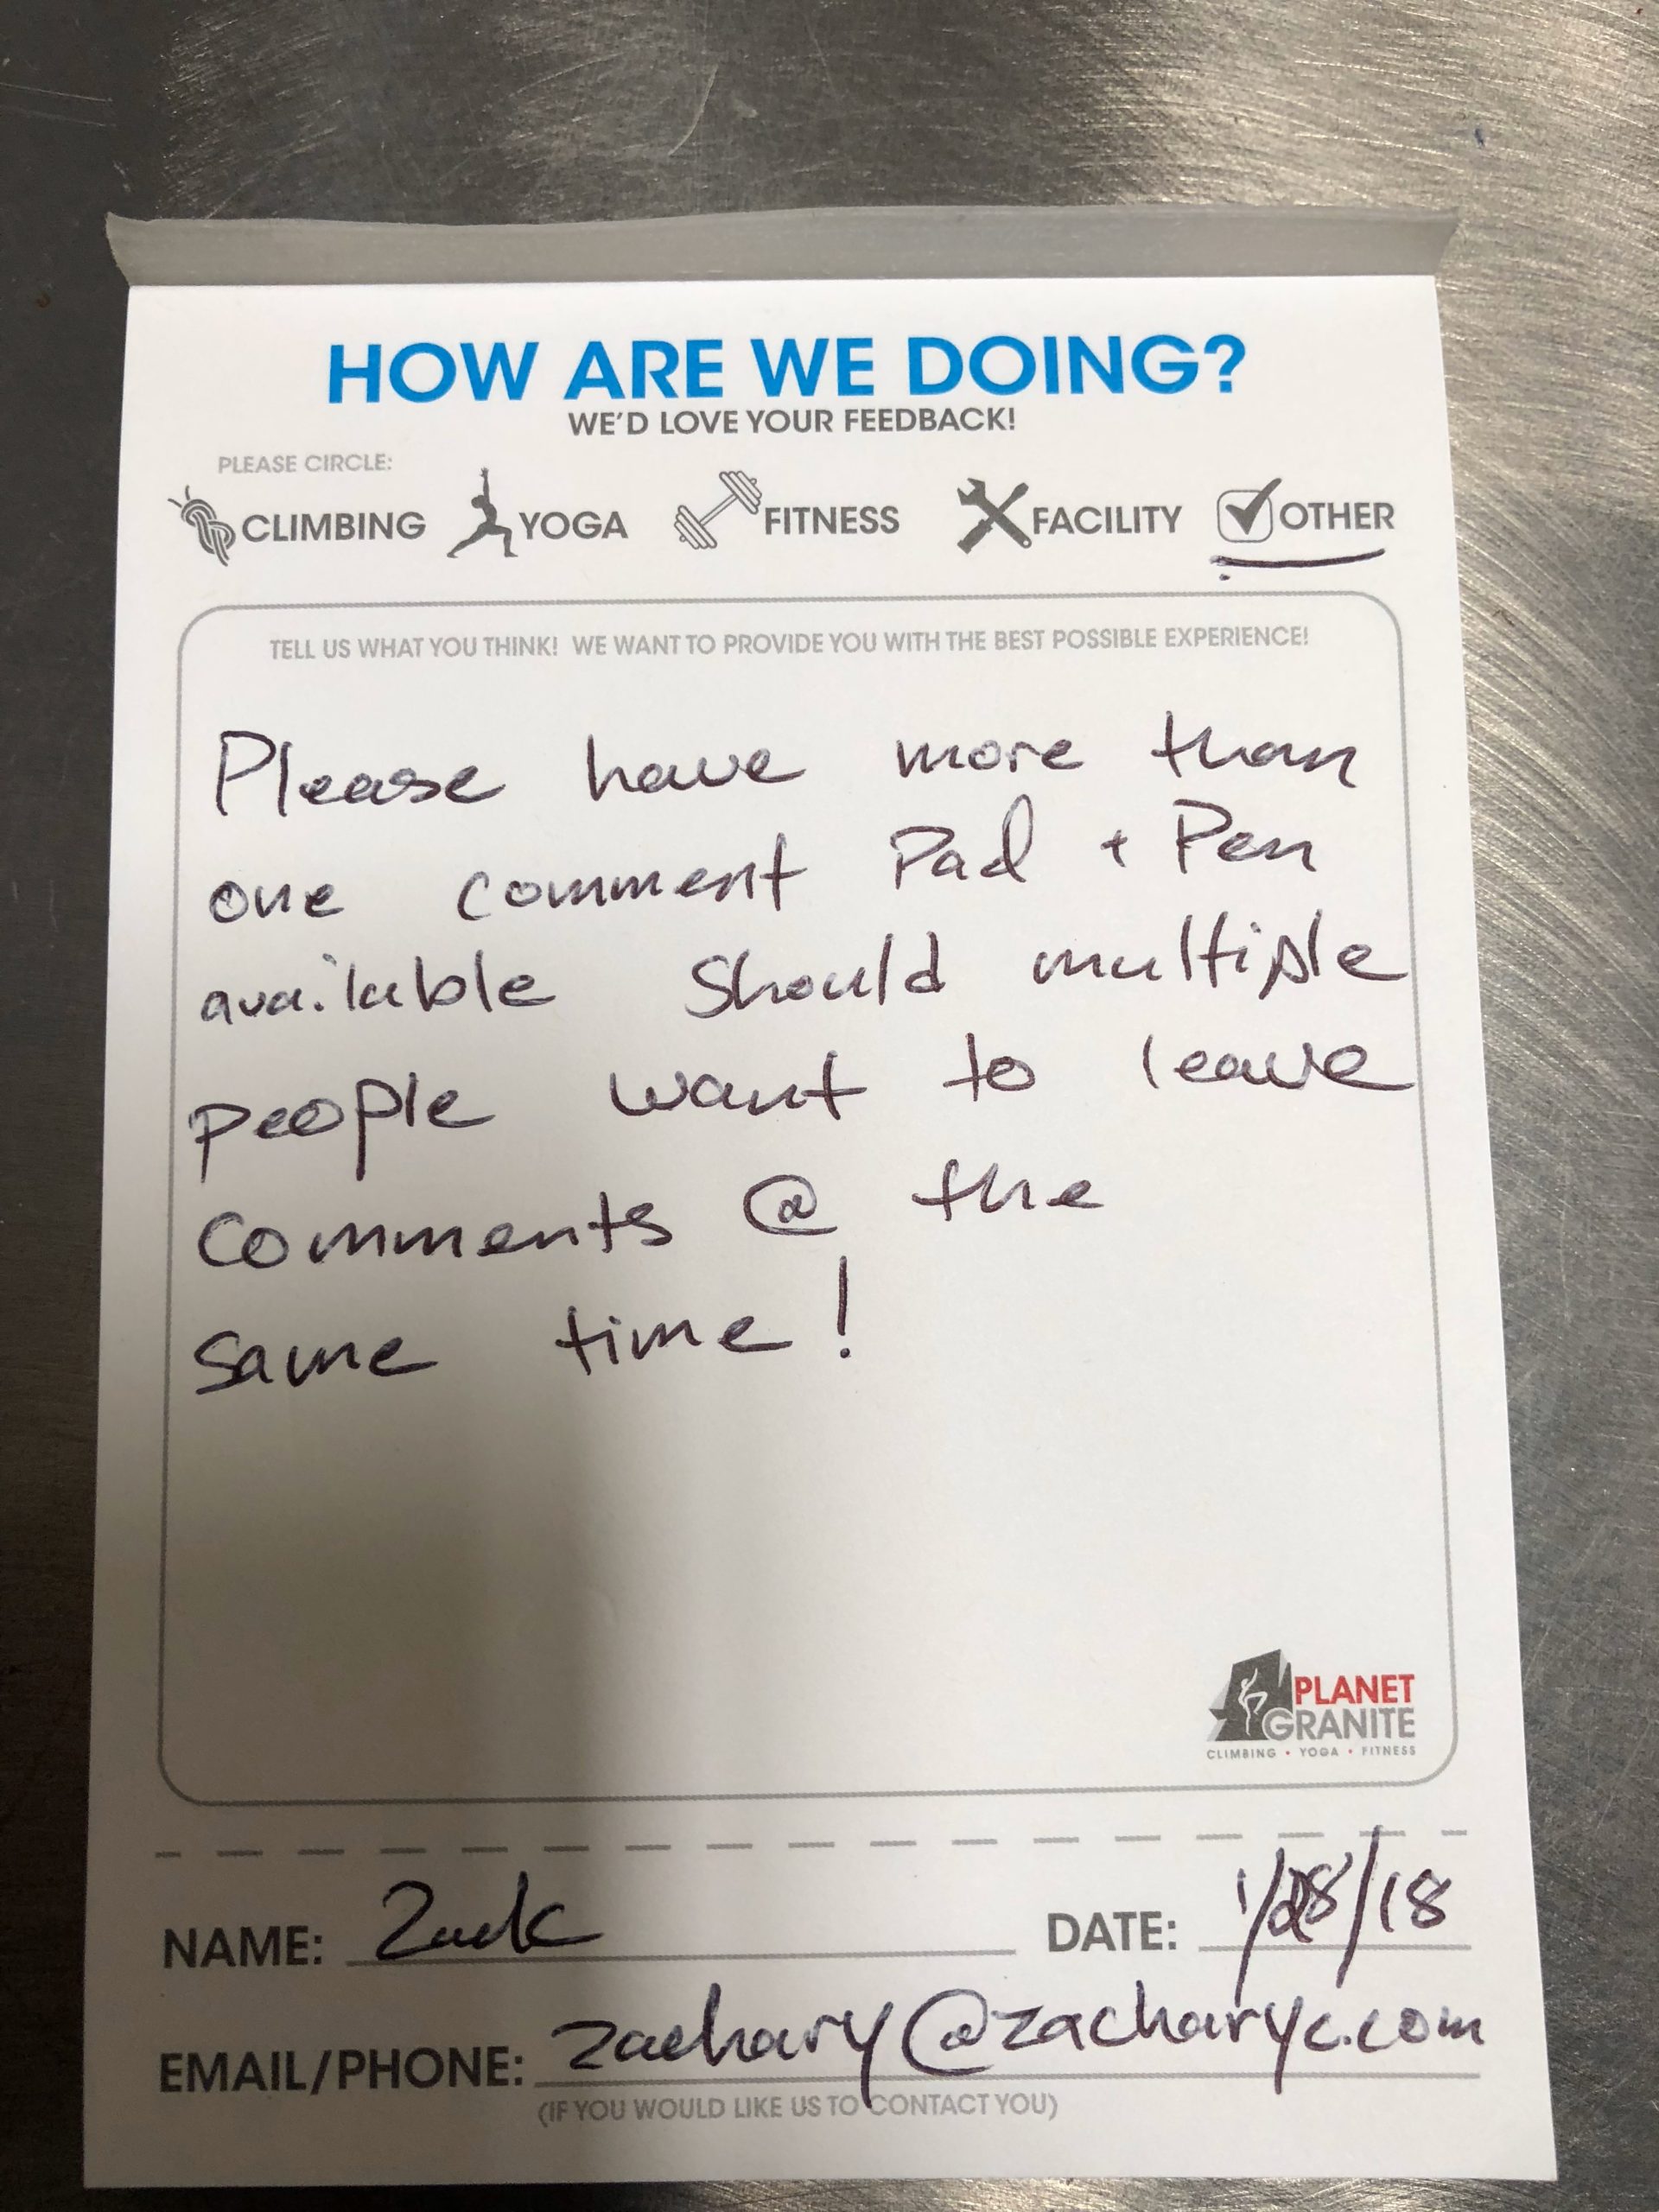 HOW ARE WE DOING?
WE'D LOVE YOUR FEEDBACK!
PLEASE CIRCLE:
CLIMBING YOGA FITNESS FACILITY OTHER
TELL US WHAT YOU THINK! WE WANT TO PROVIDE YOU WITH THE BEST POSSIBLE EXPERIENCE!
Please have more than
one comment Pad + Pen
available Should multiple
people want to leave
Comments @ the
same time!
PLANET
GRANITE
CLIMBING • YOGA • FITNESS
NAME: Zack DATE: 1/28/18
EMAIL/PHONE: zachary@zacharyc.com
(IF YOU WOULD LIKE US TO CONTACT YOU)